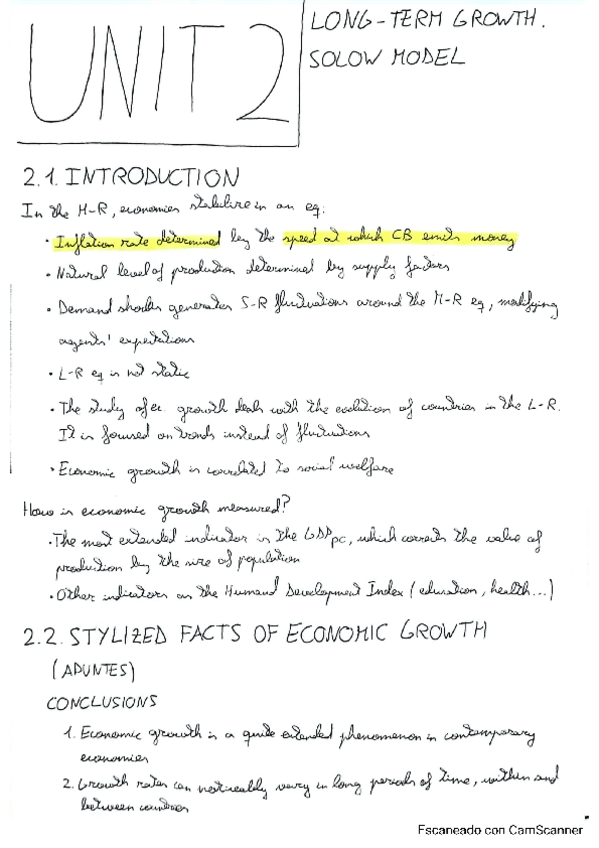 UNIT 2
LONG-TERM GROWTH.
SOLOW MODEL
2.1. INTRODUCTION
In the M-R, economies stabilize in an eq:
· Inflation rate determined by the speed at which CB emits money
· Natural level of production determined by supply factors
· Demand shocks generates S-R fluctuations around the M-R eq, modifying
agents' expectations
· L-R eq is not static
· The study of ec. growth deals with the evolution of countries in the L-R.
It is focused on trends instead of fluctuations
· Economic growth is correlated to social welfare
How is economic growth measured?
· The most extended indicator is the GDPpc, which corrects the value of
production by the size of population
· Other indicators are the Humand Development Index (education, health...)
2.2. STYLIZED FACTS OF ECONOMIC GROWTH
(APUNTES)
CONCLUSIONS
1. Economic growth is a quite extended phenomenon in contemporary
economies
2. Growth rates can noticeably vary in long periods of time, within and
between countries
Escaneado con CamScanner